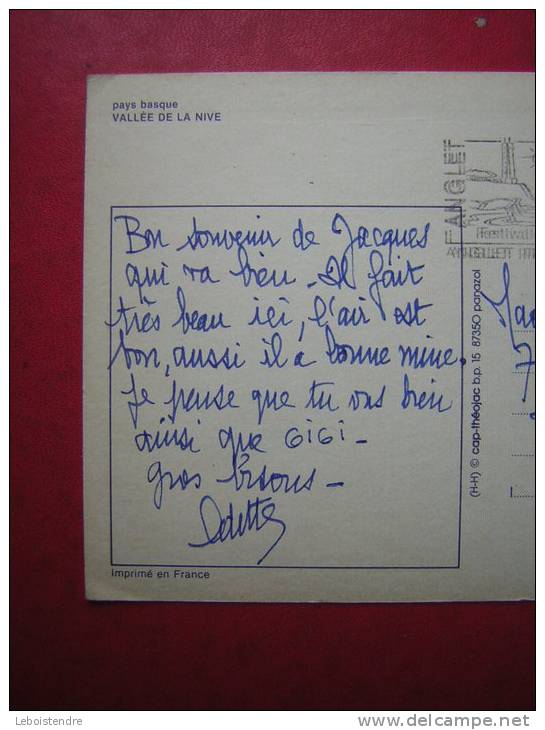 pays basque
VALLÉE DE LA NIVE
ANGLET
Festival
Bon souvenir de Jacques
qui va bien - Il fait
très beau ici, l'air est
bon, aussi il a bonne mine.
Je pense que tu vas bien
ainsi que GiGi -
Gros bisous -
Odette
imprimé en France
(H-H) © cap-théojac b.p. 15 87350 panazol
Leboistendre
www.delcampe.net